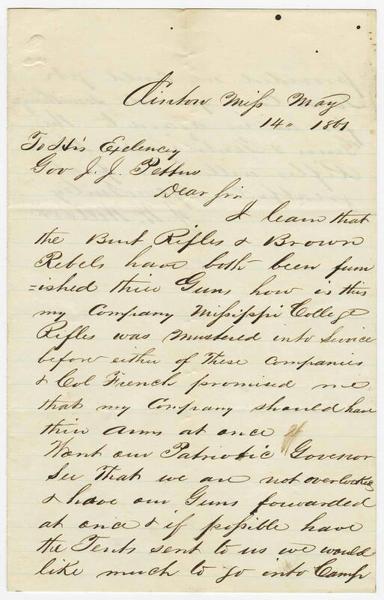 Clinton Miss May
14" 1861
To His Exelency
Gov J. J. Pettus
Dear Sir
I learn that
the Burt Rifles & Brown
Rebels have both been furn
=ished thier Guns how is this
my Company Missippi College
Rifles was mustered into Service
before either of these Companies
& Col French promised me
that my Company should have
thier arms at once
Want our Patriotic Govenor
See that we are not overlooked
& have our Guns forwarded
at once & if possible have
the Tents sent to us we would
like much to go into Camp